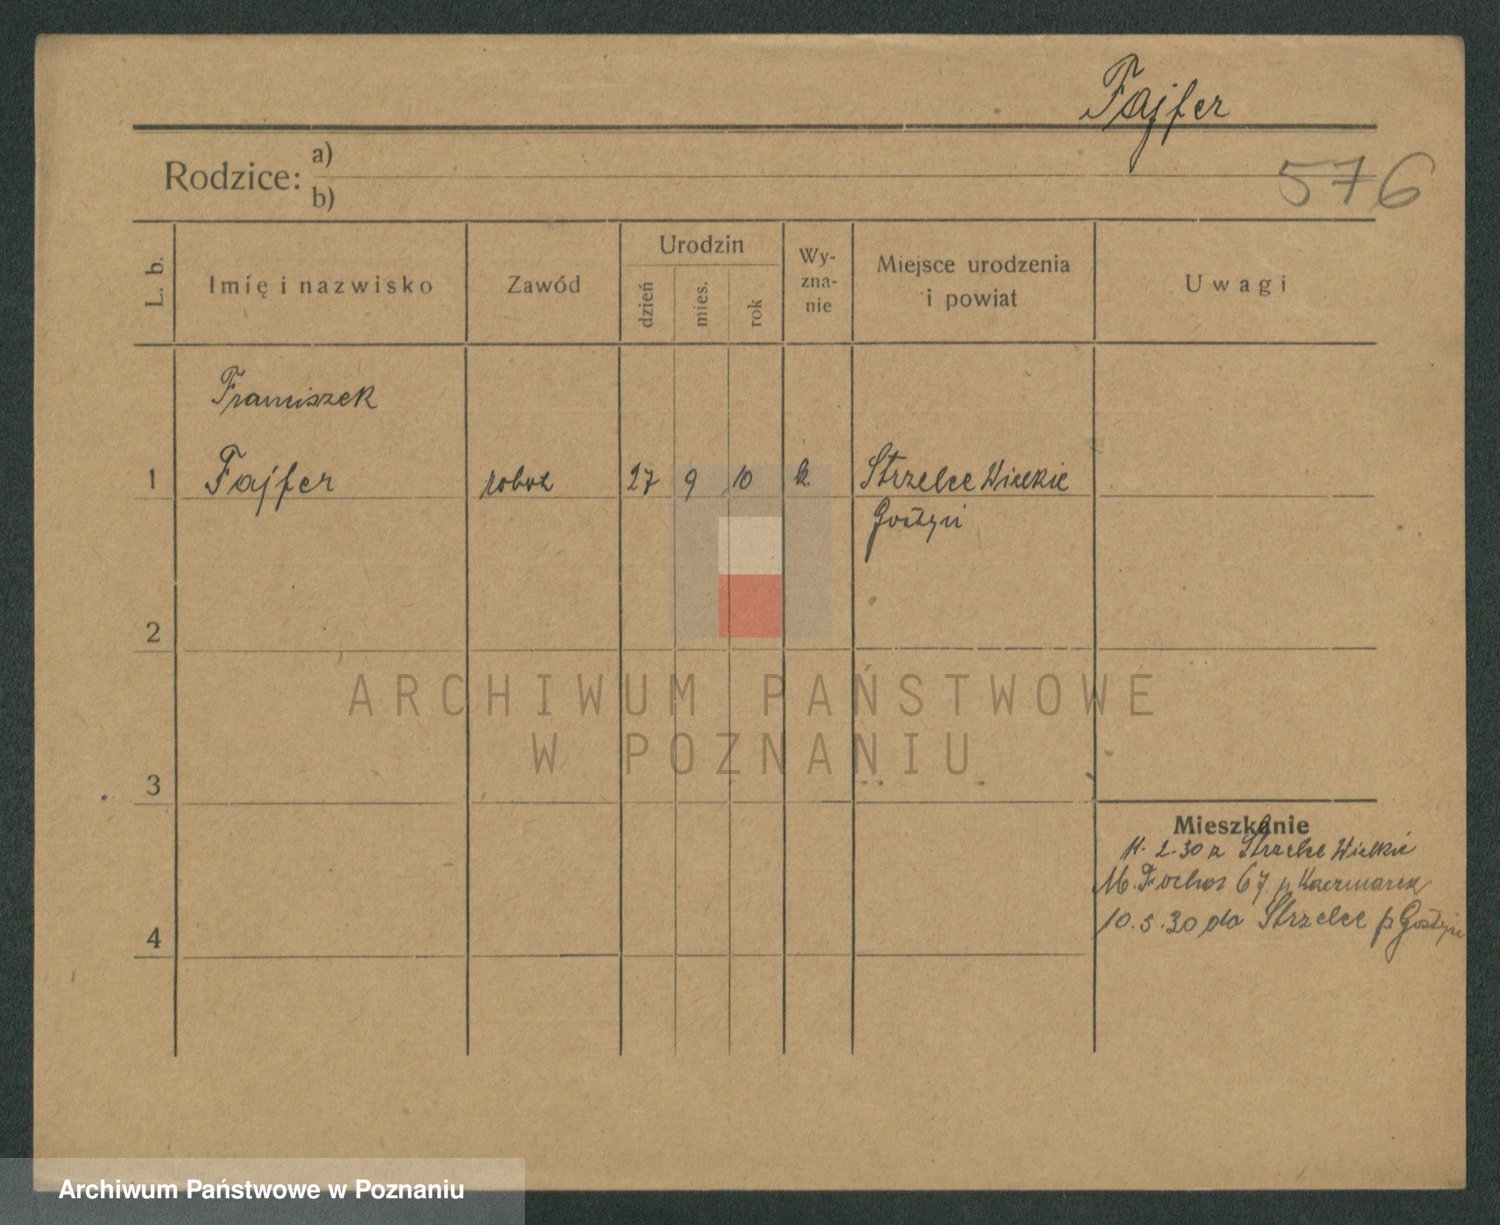 Fajfer
576
Rodzice: a)
b)
L. b.
Imię i nazwisko
Zawód
Urodzin
dzień
mies.
rok
Wy-
zna-
nie
Miejsce urodzenia
i powiat
Uwagi
Franciszek
1 Fajfer robot 27 9 10 k. Strzelce Wielkie
Gostyń
2
3
4
Mieszkanie
11.2.30 z Strzelce Wielkie
M. Focha 67 p Kaczmarek
10.5.30 do Strzelce p Gostyń
ARCHIWUM PAŃSTWOWE
W POZNANIU
Archiwum Państwowe w Poznaniu